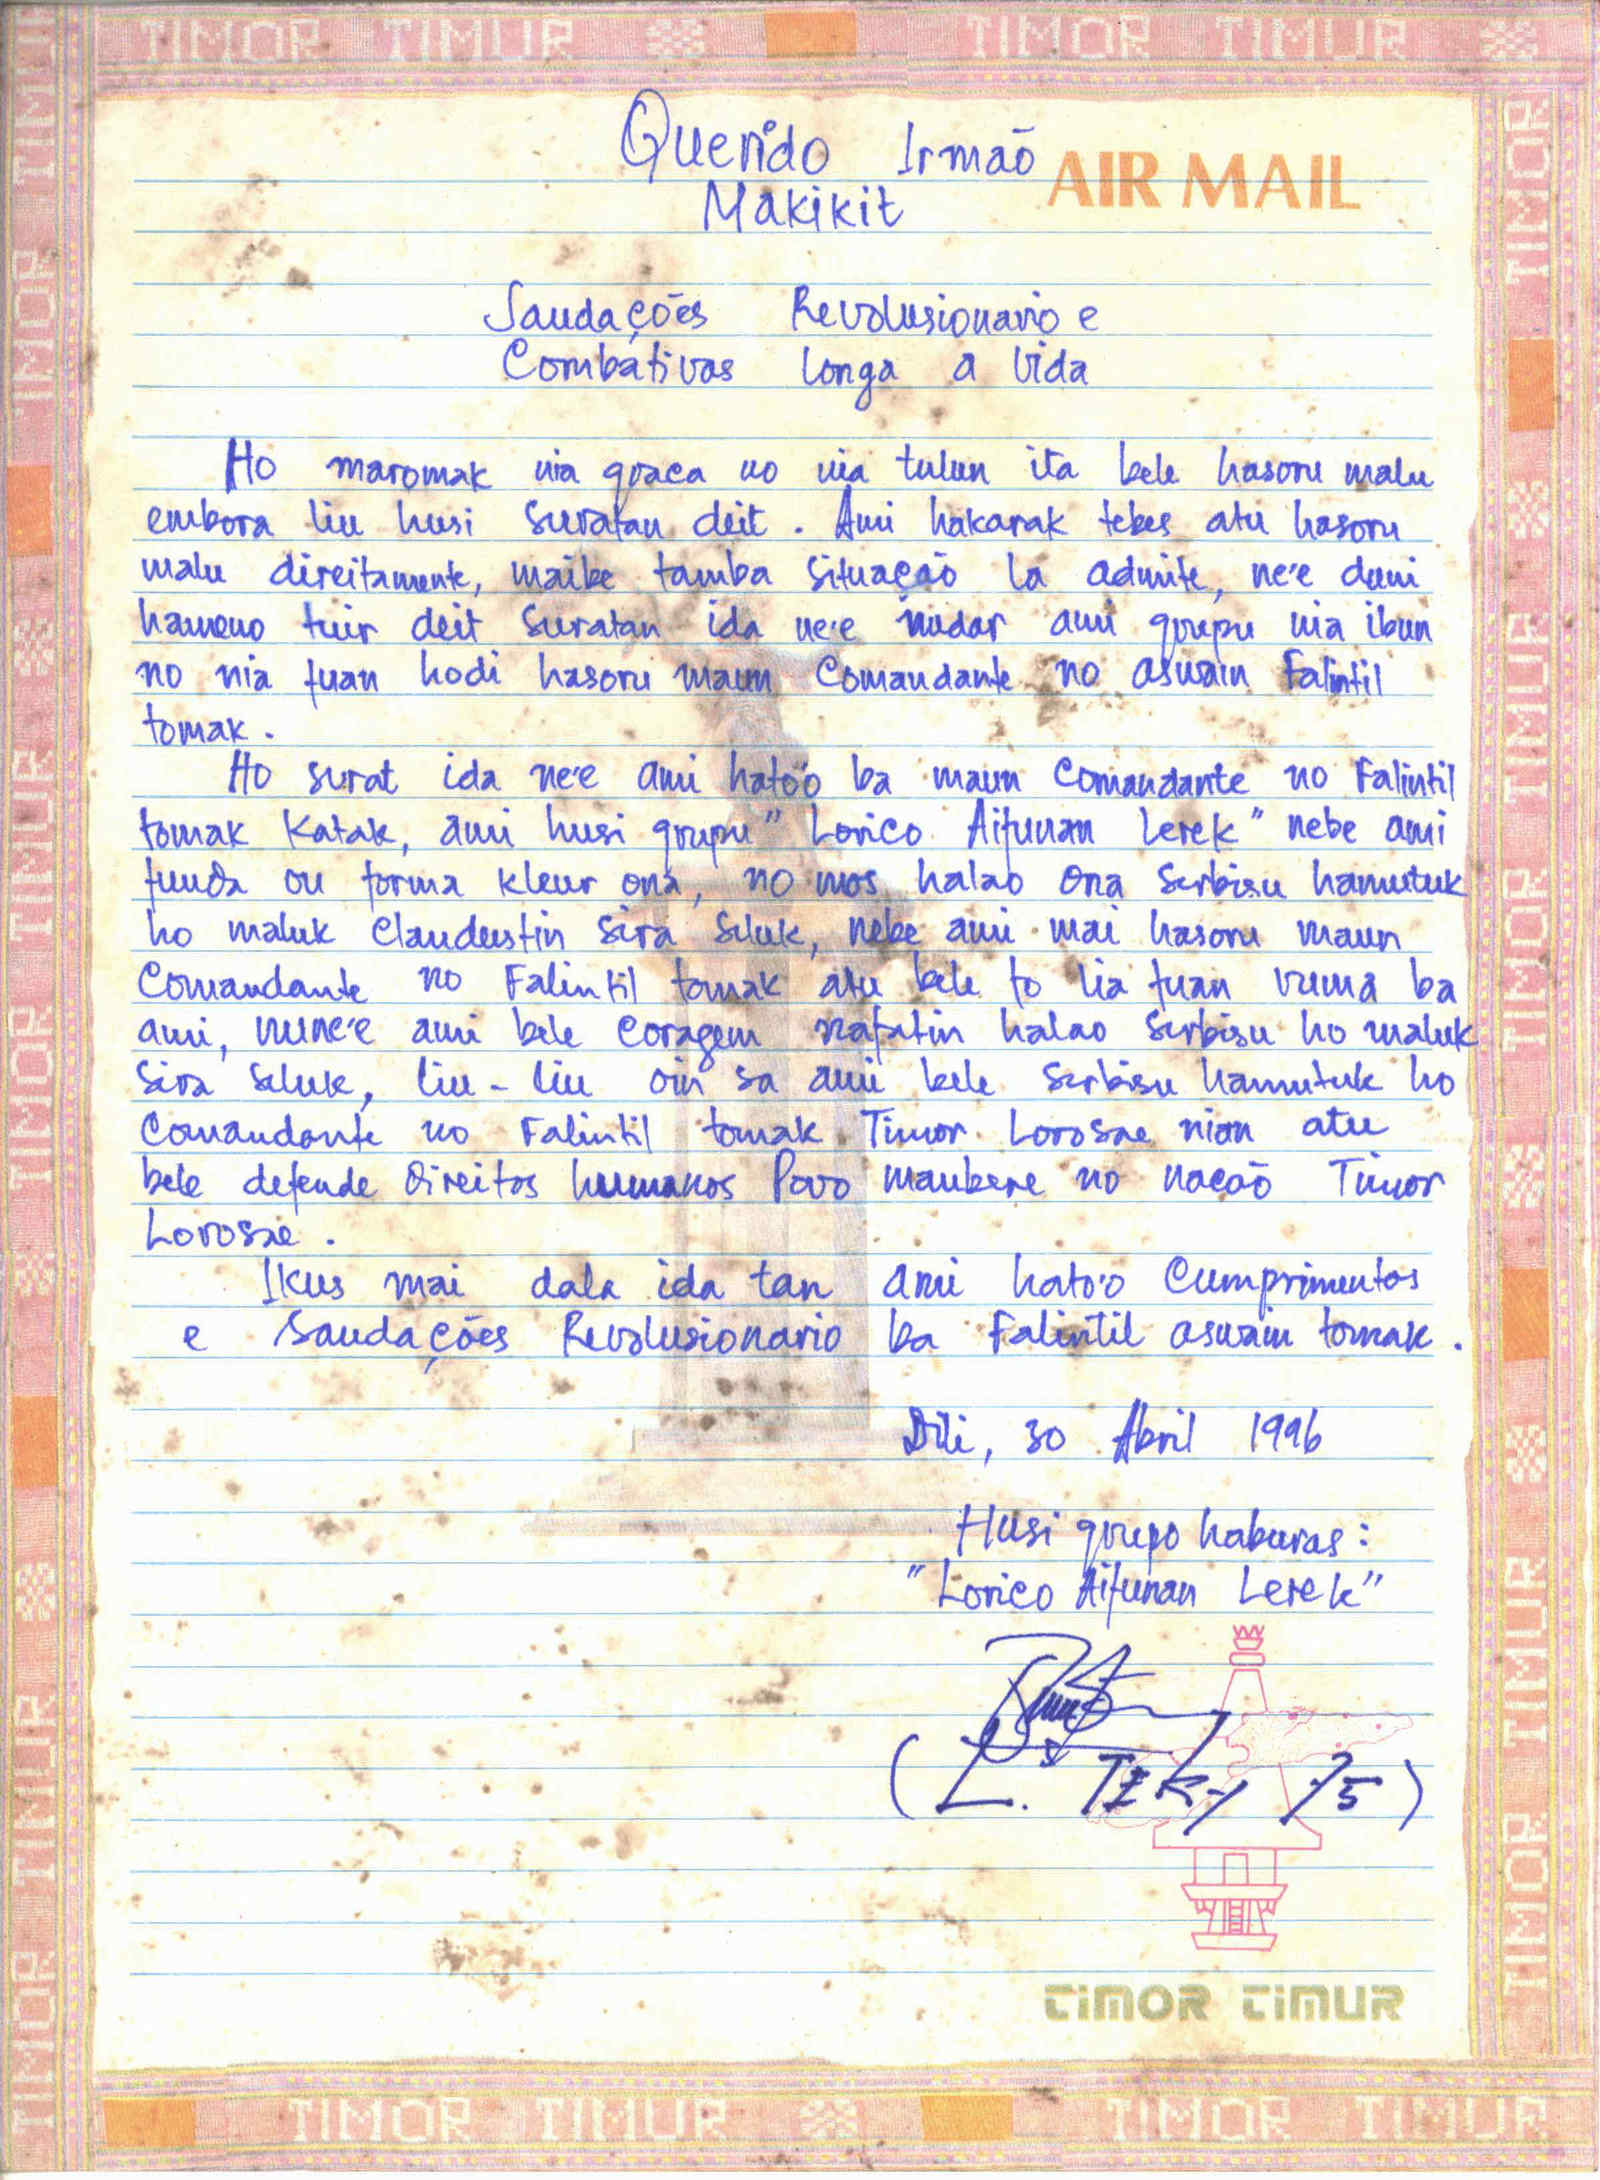 TIMOR TIMUR TIMOR TIMUR
Querido Irmão
AIR MAIL
Makikit
Saudações Revolusionario e
Combátivas longa a vida
Ho maromak nia graca no nia tulun ita bele hasoru malu
embora liu husi suratan deit. Ami hakarak tebes atu hasoru
malu direitamente, maibe tamba situação la admite, ne'e duni
hameno tuir deit suratan ida ne'e nudar ami grupu nia ibun
no nia fuan hodi hasoru maun Comandante no asuain Falintil
tomak.
Ho surat ida ne'e ami hato'o ba maun Comandante no Falintil
tomak Katak, ami husi grupu "Lorico Aifunan Lerek" nebe ami
funda ou forma kleur ona, no mos halao ona serbisu hamutuk
ho maluk Clandestin sira seluk, nebe ami mai hasoru maun
Comandante no Falintil tomak atu bele fo lia fuan ruma ba
ami, nune'e ami bele coragem nafatin halao serbisu ho maluk
sira seluk, liu-liu oin sa ami bele serbisu hamutuk ho
Comandante no Falintil tomak Timor Lorosae nian atu
bele defende Direitos humanos Povo maubere no nacaõ Timor
Lorosae.
Ikus mai dala ida tan ami hato'o Cumprimentos
e Saudações Revolusionario ba Falintil asuain tomak.
Dili, 30 Abril 1996
Husi grupo haburas:
"Lorico Aifunan Lerek"
(L. TEKY 75)
TIMOR TIMUR
TIMOR TIMUR TIMOR TIMUR